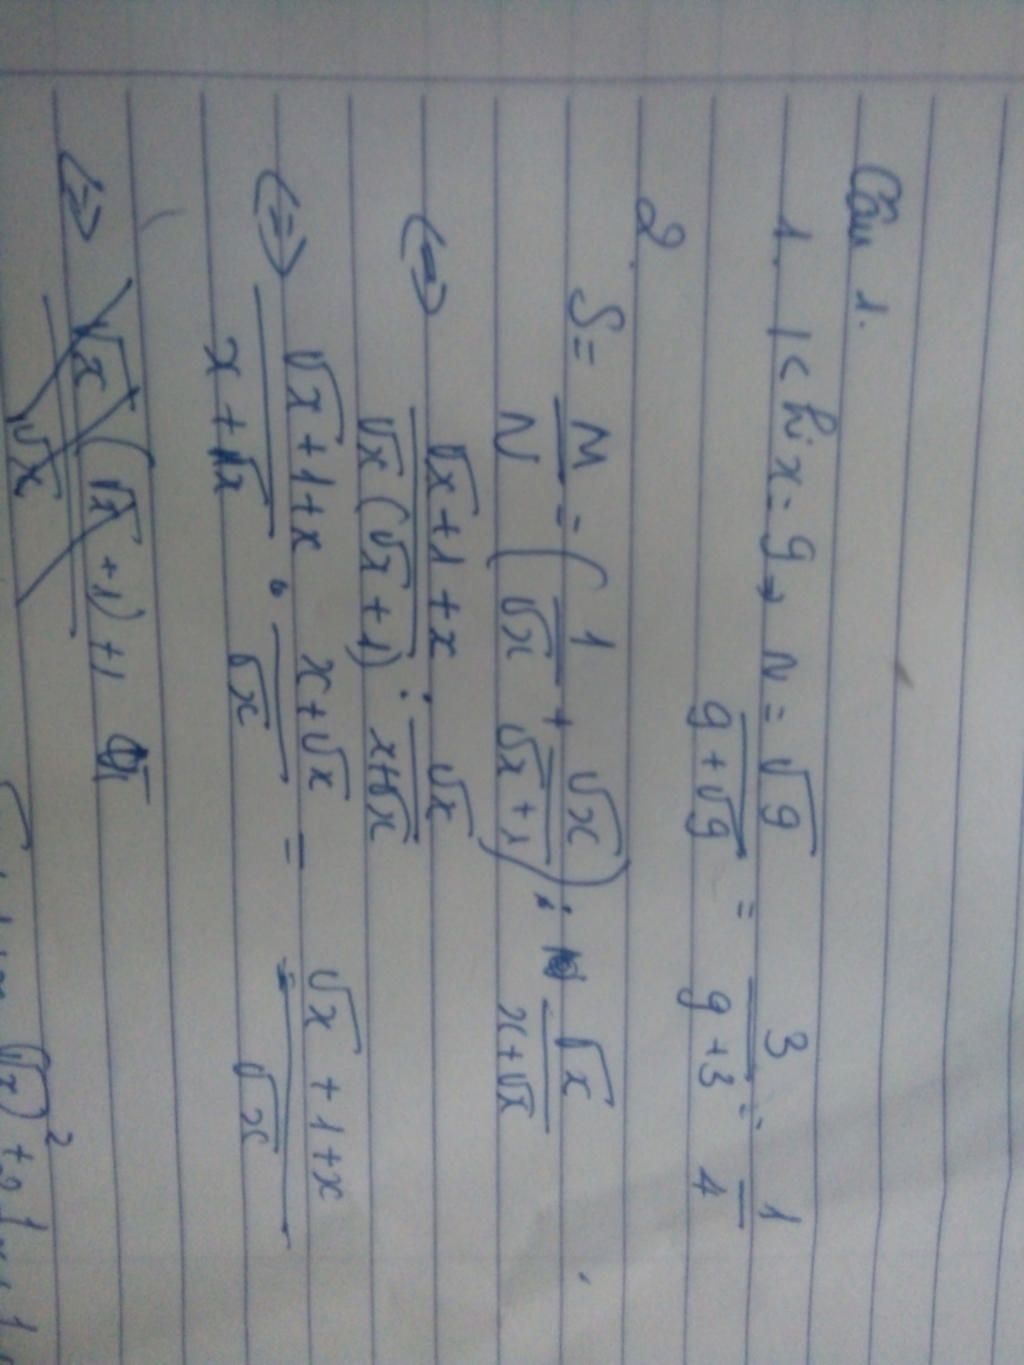 Câu 1.
1. Khi x = 9 → N = √9 / (9 + √9) = 3 / (9 + 3) = 1 / 4
2.
S = M / N = (1 / √x + √x / (√x + 1)) : √x / (x + √x)
<=> (√x + 1 + x) / (√x (√x + 1)) : √x / (x + √x)
<=> (√x + 1 + x) / (x + √x) . (x + √x) / √x = (√x + 1 + x) / √x
<=>